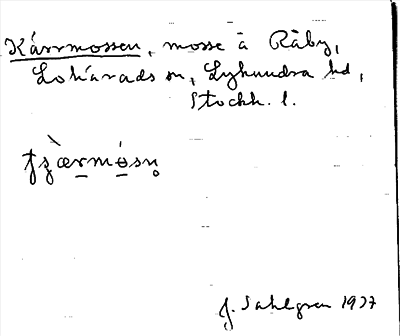 Kärrmossen, mosse å Råby,
Lohärads sn, Lyhundra hd,
Stockh. l.
tʂær̲mò̲sn̥
J. Sahlgren 1937